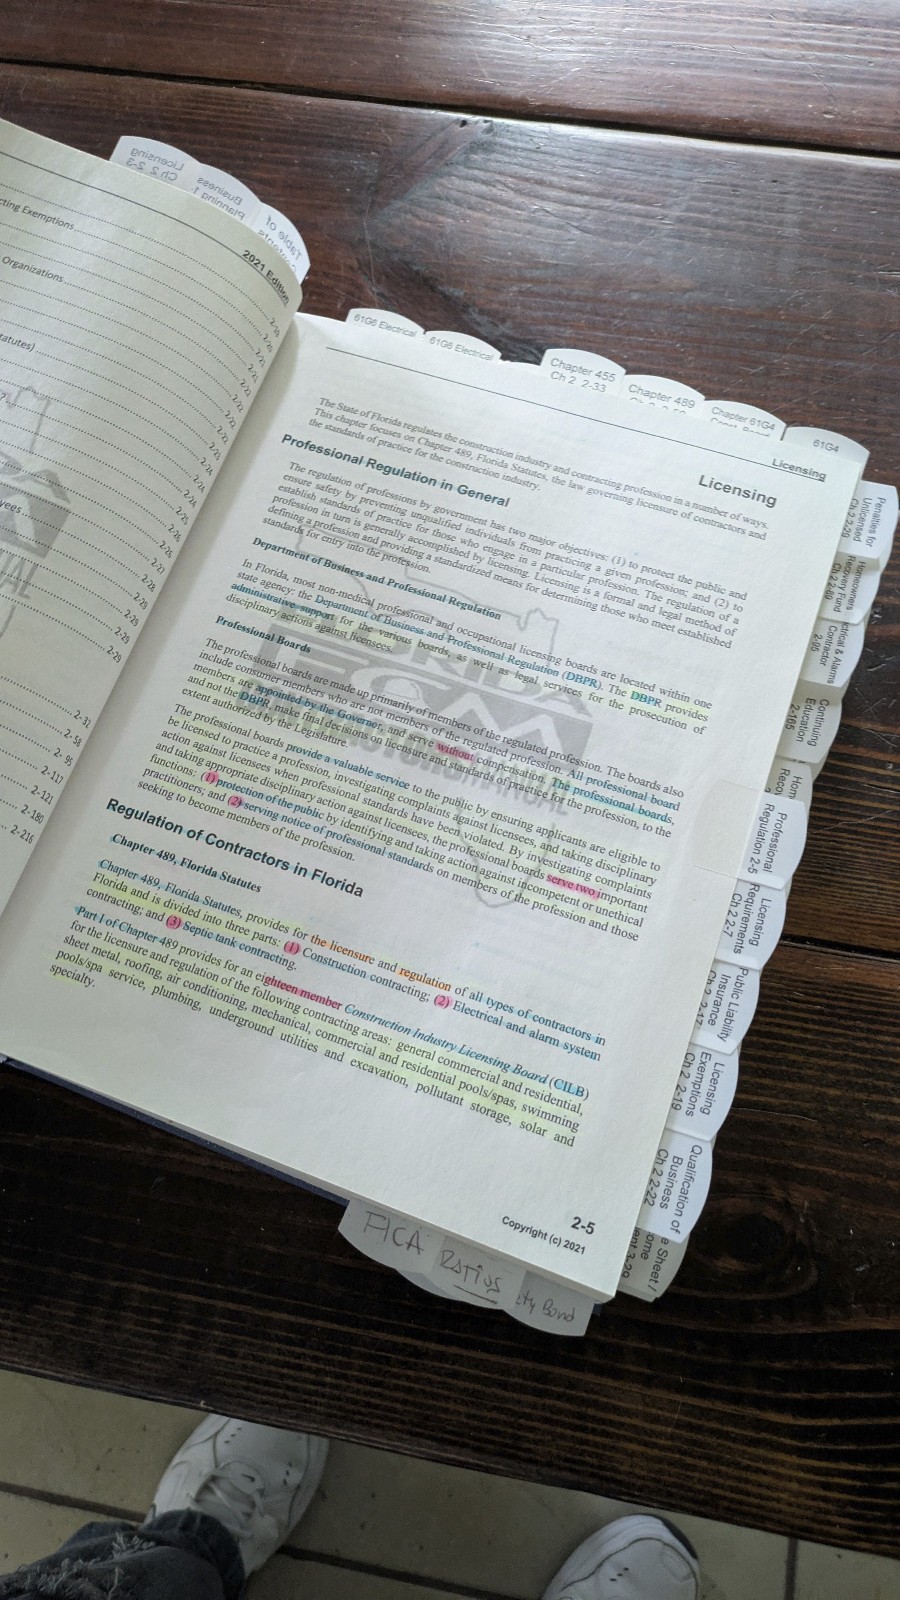 Licensing
Ch 2 2-3
Business
Planning 1
Table of
2021 Edition
cting Exemptions
Organizations
tatutes)
2-22
2-22
2-22
2-24
2-24
2-25
2-26
2-28
2-29
2-29
2-29
2-58
2-95
2-117
2-121
2-180
2-216
61G6 Electrical
61G6 Electrical
Chapter 455
Ch 2 2-33
Chapter 489
Chapter 61G4
61G4
Licensing
Licensing
The State of Florida regulates the construction industry and contracting profession in a number of ways.
This chapter focuses on Chapter 489, Florida Statutes, the law governing licensure of contractors and
the standards of practice for the construction industry.
Professional Regulation in General
The regulation of professions by government has two major objectives: (1) to protect the public and
ensure safety by preventing unqualified individuals from practicing a given profession; and (2) to
establish standards of practice for those who engage in a particular profession. The regulation of a
profession in turn is generally accomplished by licensing. Licensing is a formal and legal method of
defining a profession and providing a standardized means for determining those who meet established
standards for entry into the profession.
Department of Business and Professional Regulation
In Florida, most non-medical professional and occupational licensing boards are located within one
state agency: the Department of Business and Professional Regulation (DBPR). The DBPR provides
administrative support for the various boards, as well as legal services for the prosecution of
disciplinary actions against licensees.
Professional Boards
The professional boards are made up primarily of members of the regulated profession. The boards also
include consumer members who are not members of the regulated profession. All professional board
members are appointed by the Governor and serve without compensation. The professional boards,
and not the DBPR, make final decisions on licensure and standards of practice for the profession, to the
extent authorized by the Legislature.
The professional boards provide a valuable service to the public by ensuring applicants are eligible to
be licensed to practice a profession, investigating complaints against licensees, and taking disciplinary
action against licensees when professional standards have been violated. By investigating complaints
and taking appropriate disciplinary action against licensees, the professional boards serve two important
functions: (1) protection of the public by identifying and taking action against incompetent or unethical
practitioners; and (2) serving notice of professional standards on members of the profession and those
seeking to become members of the profession.
Regulation of Contractors in Florida
Chapter 489, Florida Statutes
Chapter 489, Florida Statutes, provides for the licensure and regulation of all types of contractors in
Florida and is divided into three parts: (1) Construction contracting; (2) Electrical and alarm system
contracting; and (3) Septic tank contracting.
Part I of Chapter 489 provides for an eighteen member Construction Industry Licensing Board (CILB)
for the licensure and regulation of the following contracting areas: general commercial and residential,
sheet metal, roofing, air conditioning, mechanical, commercial and residential pools/spas, swimming
pools/spa service, plumbing, underground utilities and excavation, pollutant storage, solar and
specialty.
2-5
Copyright (c) 2021
Penalties for
Unlicensed
Ch 2 2-29
Homeowners
Recovery Fund
Ch 2 2-89
& Alarms
Contractor
2-95
Continuing
Education
2-165
Hom
Reco
Professional
Regulation 2-5
Licensing
Requirements
Ch 2 2-7
Public Liability
Insurance
Ch 2 2-17
Licensing
Exemptions
Ch 2 2-19
Qualification of
Business
Ch 2 2-22
e Sheet /
ome
3-29
FICA
RATios
ety Bond